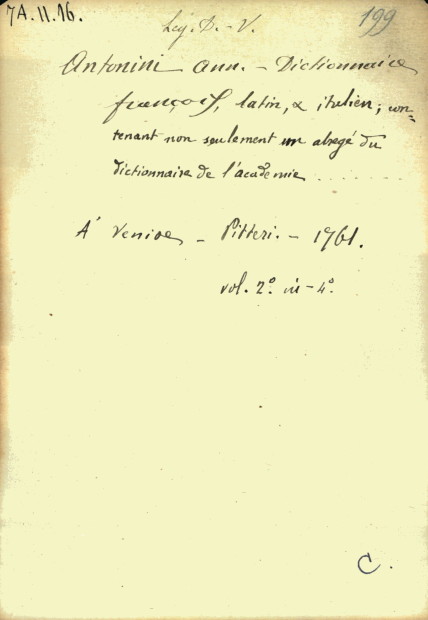 7A.II.16.
Leg. D.-V.
199
Antonini Ann. - Dictionnaire
françois, latin, & italien; con=
tenant non seulement un abregé du
dictionnaire de l'académie . . . . . .
A' Venise - Pitteri. - 1761.
vol. 2.° in-4.°
C.